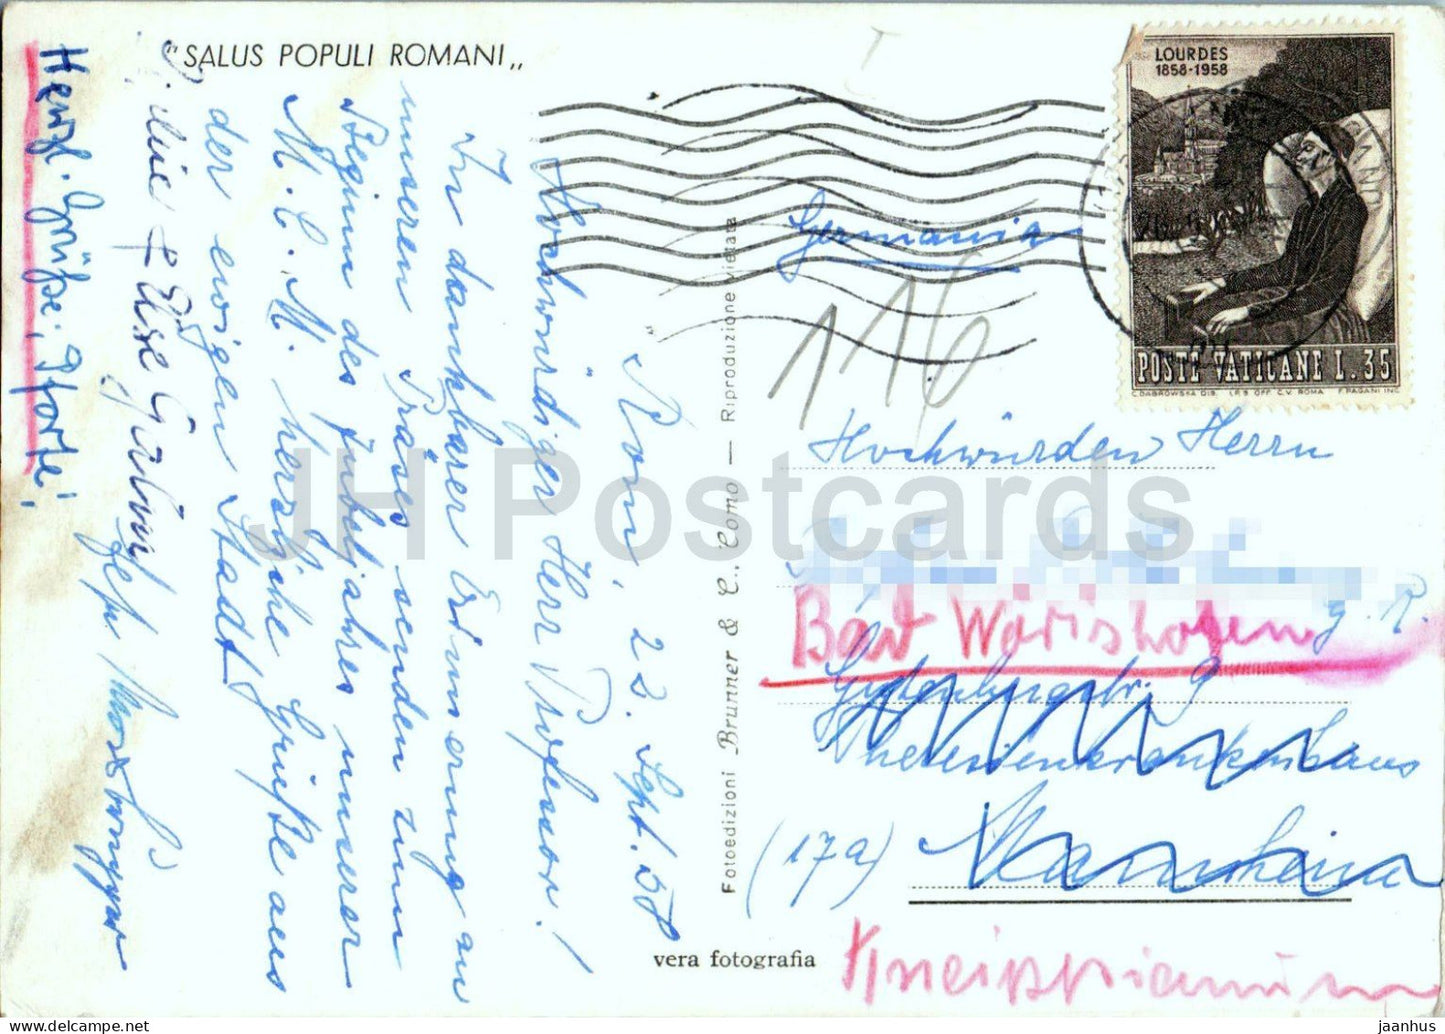 "SALUS POPULI ROMANI„
Rom, 22. Sept. 58
Hochwürdiger Herr Professor!
In dankbarer Erinnerung an
unseren Präses senden zum
Beginn des Jubeljahres unserer
M. C. M. herzliche Grüße aus
der ewigen Stadt
& Else
Herzl. Grüße, Pforte!
Fotoedizioni Brunner & C., Como — Riproduzione vietata
vera fotografia
LOURDES
1858-1958
POSTE VATICANE L. 35
C. DABROWSKA DIS. I.P.S. OFF. C.V. ROMA F. PAGANI INC.
Germania
116
Hochwürden Herrn
g. R.
Bad Wörishofen
9
Theresienkrankenhaus
(17a) Mannheim
Kneippianum
JH Postcards
jaanhus